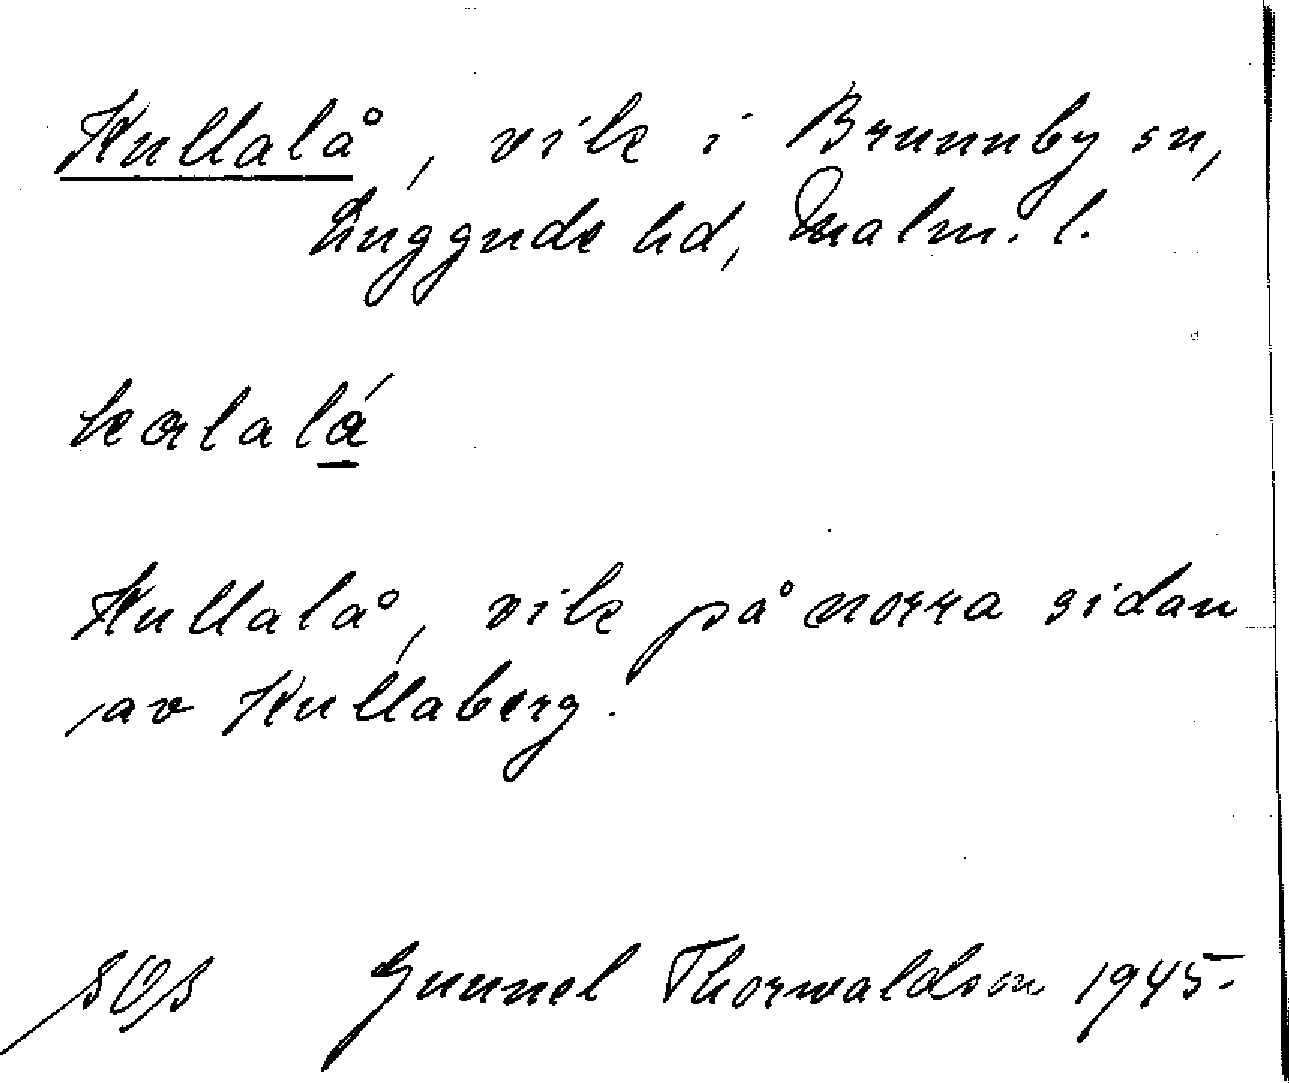 Kullalå, vik i Brunnby sn,
Luggude hd, Malm. l.
kɑlalá
Kullalå, vik på norra sidan
av Kullaberg.
Gunnel Thorwaldson 1945.